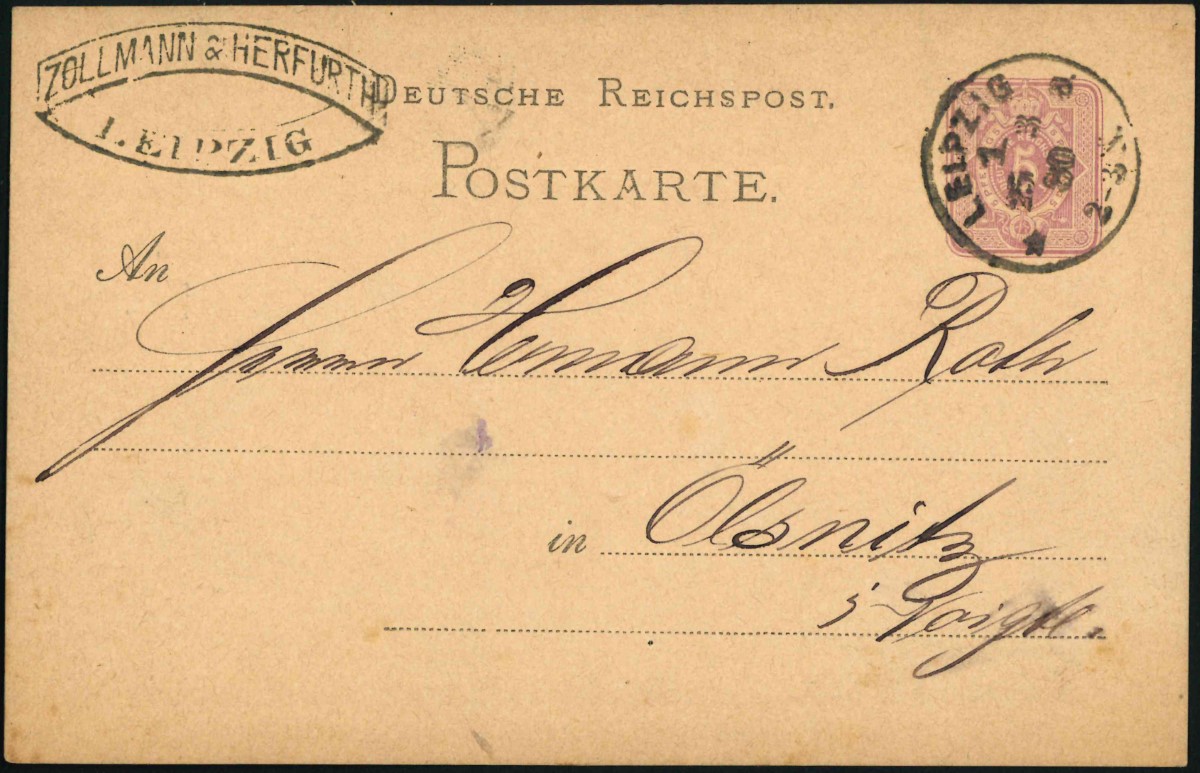 ZOLLMANN & HERFURTH
LEIPZIG
DEUTSCHE REICHSPOST.
POSTKARTE.
LEIPZIG
1
25 3
80
2-3N
5
An
Herrn Hermann Roth
in Ölsnitz
i. Voigtl.